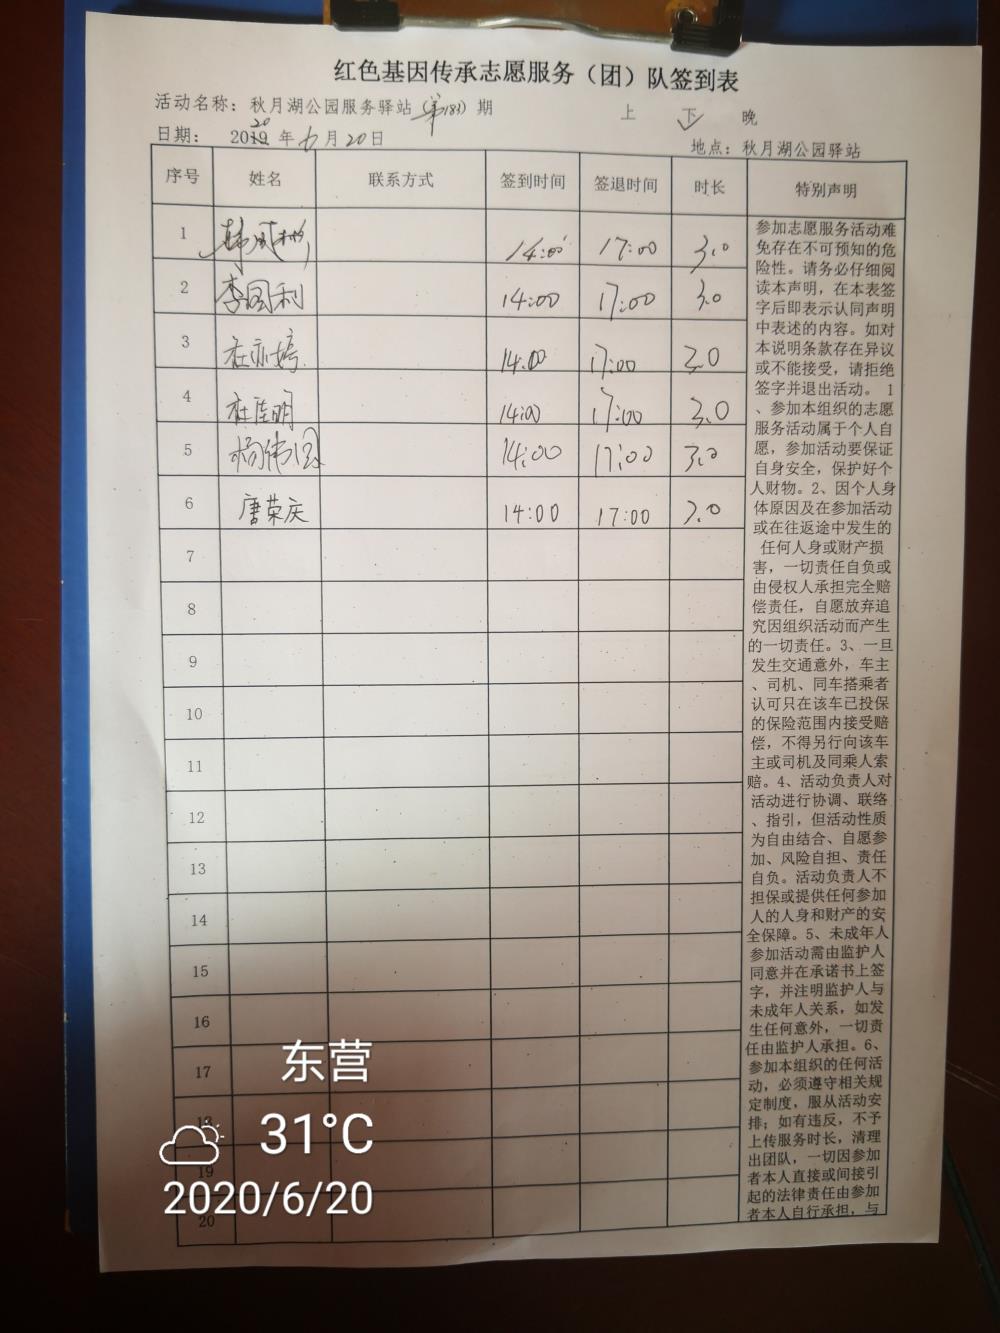 红色基因传承志愿服务（团）队签到表
活动名称：秋月湖公园服务驿站（第183）期 上 下 ✓ 晚
日期：2020年6月20日 地点：秋月湖公园驿站
序号 姓名 联系方式 签到时间 签退时间 时长 特别声明
1 14:00 17:00 3.0
2 李国利 14:00 17:00 3.0
3 杜亦婷 14:00 17:00 3.0
4 杜佳明 14:00 17:00 3.0
5 杨伟国 14:00 17:00 3.0
6 唐荣庆 14:00 17:00 3.0
7
8
9
10
11
12
13
14
15
16
17
18
19
20
参加志愿服务活动难
免存在不可预知的危
险性。请务必仔细阅
读本声明，在本表签
字后即表示认同声明
中表述的内容。如对
本说明条款存在异议
或不能接受，请拒绝
签字并退出活动。 1
、参加本组织的志愿
服务活动属于个人自
愿，参加活动要保证
自身安全，保护好个
人财物。2、因个人身
体原因及在参加活动
或在往返途中发生的
任何人身或财产损
害，一切责任自负或
由侵权人承担完全赔
偿责任，自愿放弃追
究因组织活动而产生
的一切责任。3、一旦
发生交通意外，车主
、司机、同车搭乘者
认可只在该车已投保
的保险范围内接受赔
偿，不得另行向该车
主或司机及同乘人索
赔。4、活动负责人对
活动进行协调、联络
、指引，但活动性质
为自由结合、自愿参
加、风险自担、责任
自负。活动负责人不
担保或提供任何参加
人的人身和财产的安
全保障。5、未成年人
参加活动需由监护人
同意并在承诺书上签
字，并注明监护人与
未成年人关系，如发
生任何意外，一切责
任由监护人承担。6、
参加本组织的任何活
动，必须遵守相关规
定制度，服从活动安
排；如有违反，不予
上传服务时长，清理
出团队，一切因参加
者本人直接或间接引
起的法律责任由参加
者本人自行承担，与
东营
31°C
2020/6/20